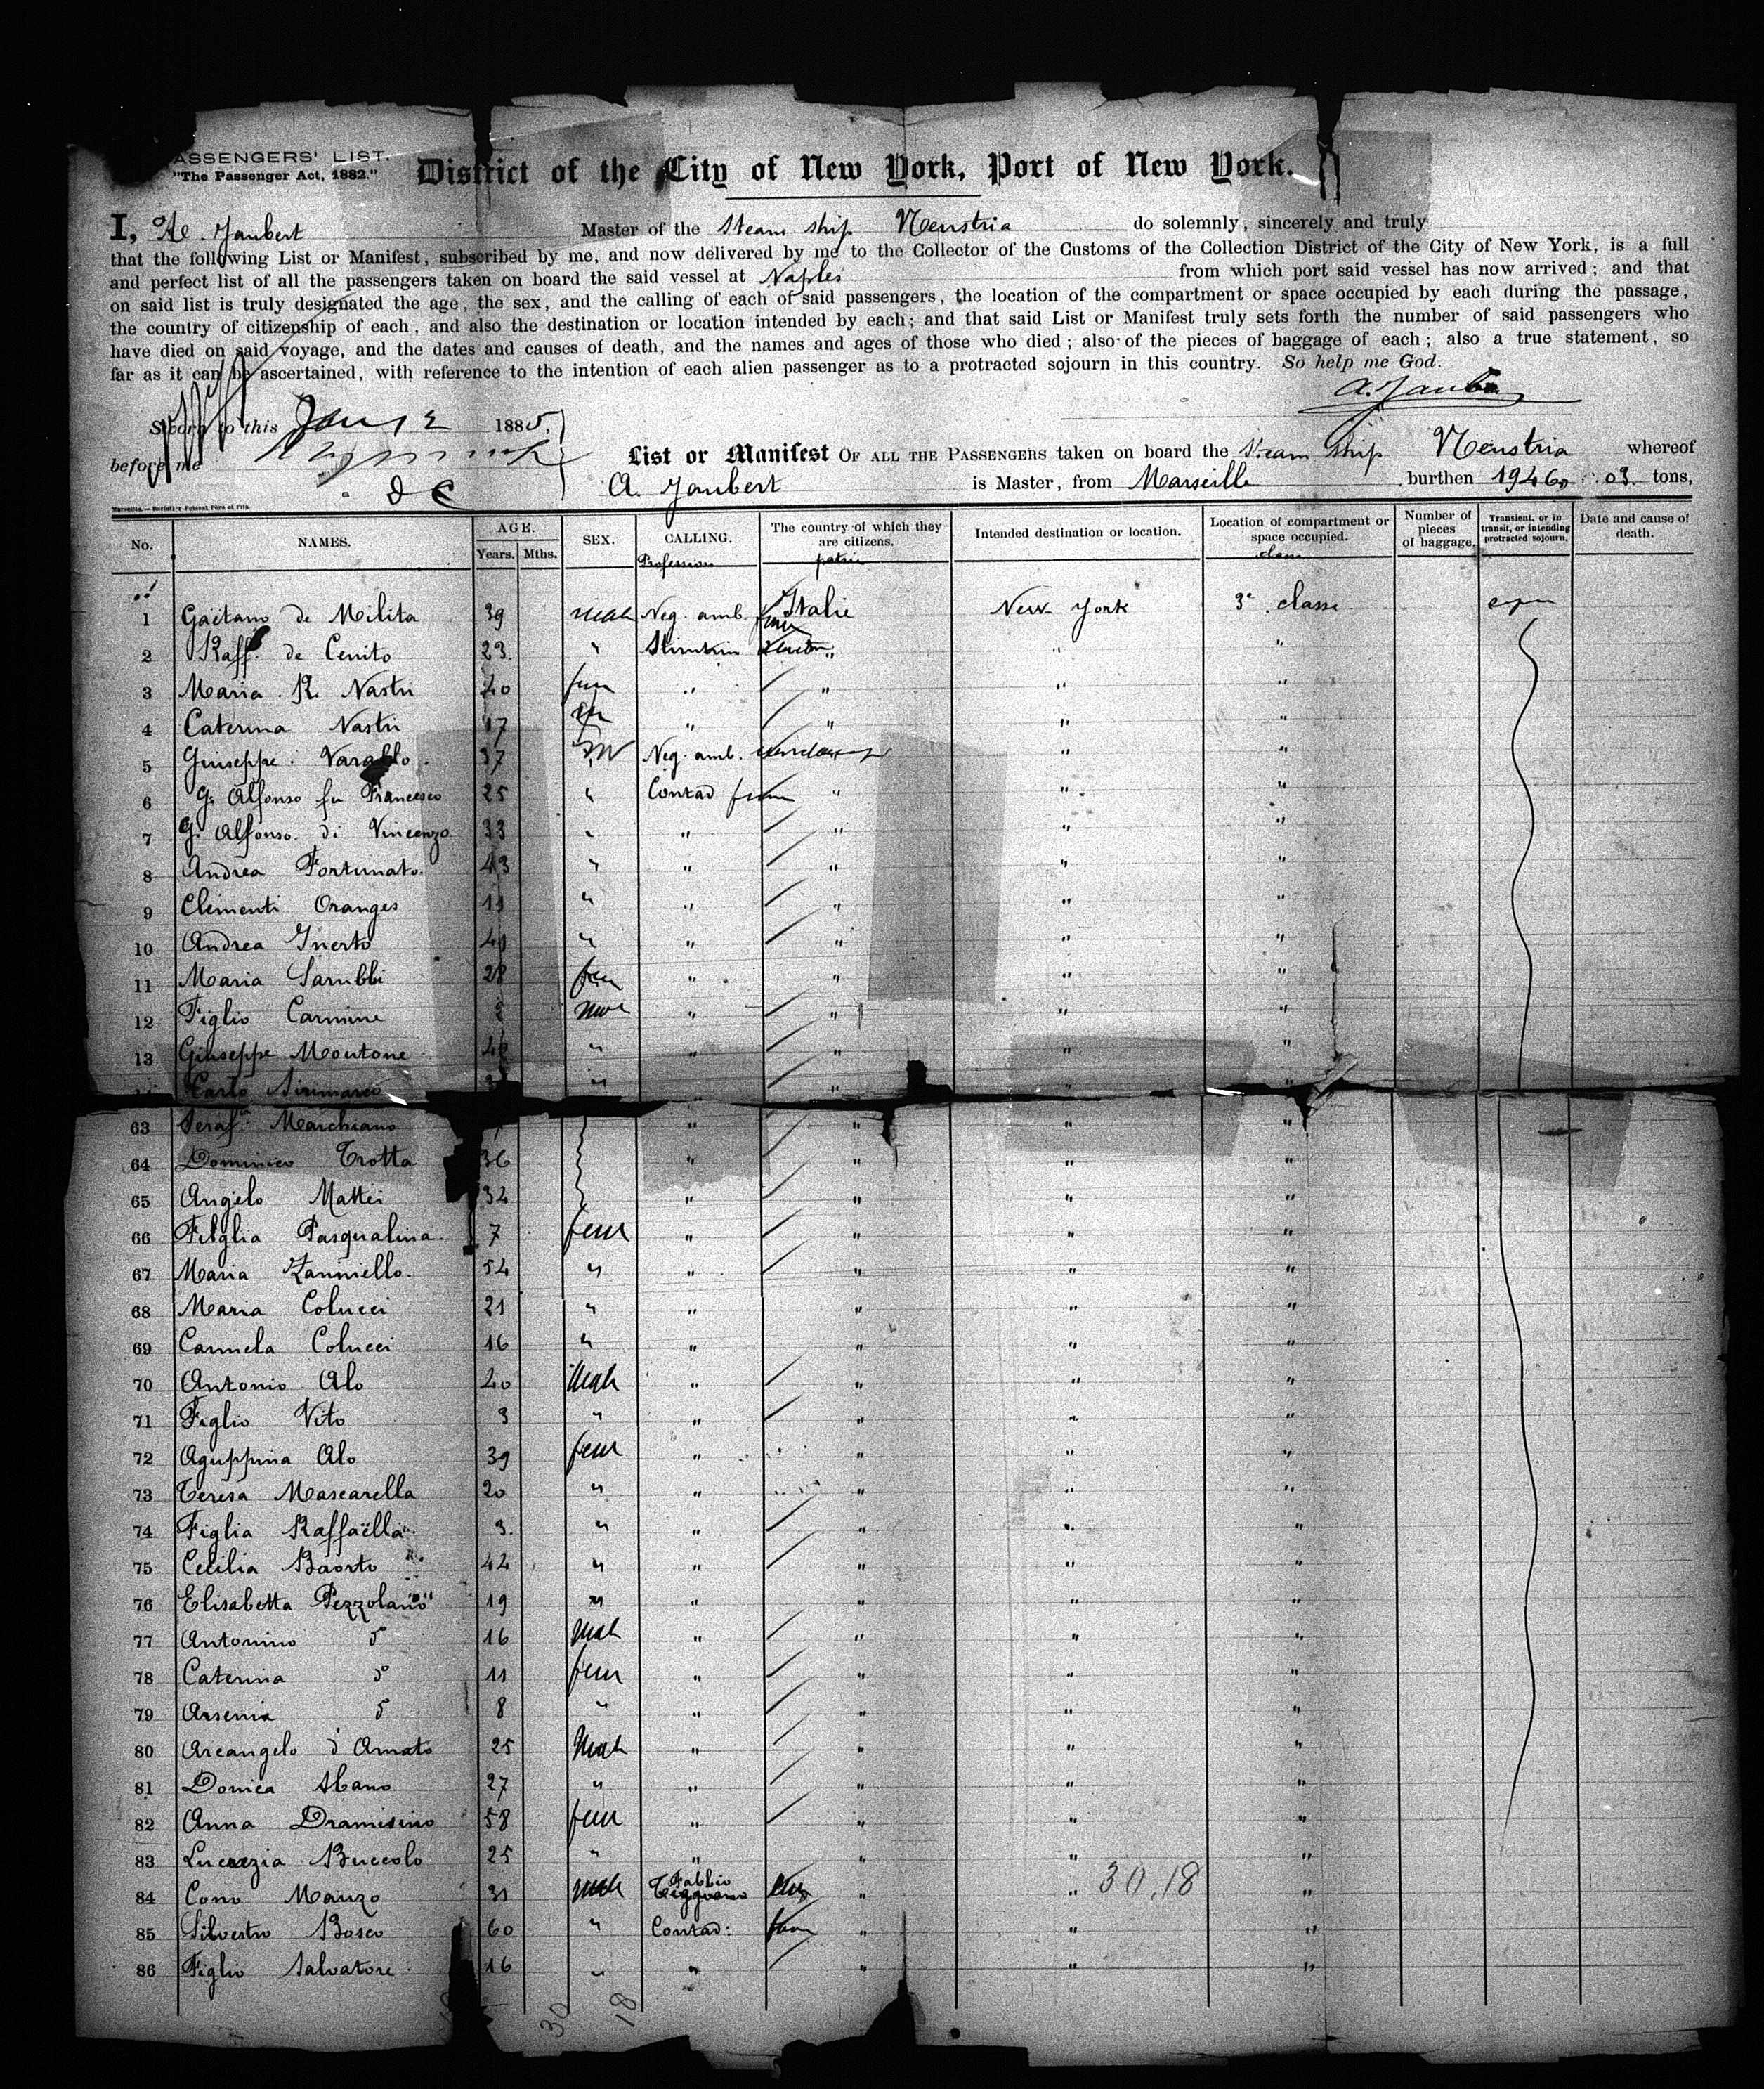 ASSENGERS' LIST.
"The Passenger Act, 1882."
District of the City of New York, Port of New York.
I, Jaubert Master of the Steam ship Neustria do solemnly, sincerely and truly
that the following List or Manifest, subscribed by me, and now delivered by me to the Collector of the Customs of the Collection District of the City of New York, is a full
and perfect list of all the passengers taken on board the said vessel at Naples from which port said vessel has now arrived; and that
on said list is truly designated the age, the sex, and the calling of each of said passengers, the location of the compartment or space occupied by each during the passage,
the country of citizenship of each, and also the destination or location intended by each; and that said List or Manifest truly sets forth the number of said passengers who
have died on said voyage, and the dates and causes of death, and the names and ages of those who died; also of the pieces of baggage of each; also a true statement, so
far as it can be ascertained, with reference to the intention of each alien passenger as to a protracted sojourn in this country. So help me God.
A. Jaubert
Sworn to this Jany 2 1885,
before me
List or Manifest OF ALL THE PASSENGERS taken on board the Steam ship Neustria whereof
A. Jaubert is Master, from Marseille burthen 1946, 03 tons,
No. NAMES. AGE. Years. Mths. SEX. CALLING. Profession The country of which they are citizens. patrie Intended destination or location. Location of compartment or space occupied. classe Number of pieces of baggage. Transient, or in transit, or intending protracted sojourn. Date and cause of death.
1 Gaëtano de Milita 39 male Neg. amb. Italie New York 3e classe
2 Raff. de Cenito 23 " " " "
3 Maria R. Nastri 40 fem " " " "
4 Caterina Nastri 17 " " " "
5 Giuseppe Varallo 37 Neg. amb. " "
6 G. Alfonso fu Francesco 25 " Contad " " "
7 G. Alfonso di Vincenzo 33 " " " " "
8 Andrea Fortunato 43 " " " " "
9 Clementi Oranges 11 " " " " "
10 Andrea Inerto 40 " " " " "
11 Maria Sarubbi 28 fem " " " "
12 Figlio Carmine male " " " "
13 Giuseppe Montone " " " " "
Carlo Sirimarco " " " "
63 Seraf. Marchiano " " " "
64 Dominico Trotta 36 " " " "
65 Angelo Mattei 34 " " " "
66 Figlia Pasqualina 7 fem " " " "
67 Maria Zanniello 54 " " " " "
68 Maria Colucci 21 " " " " "
69 Carmela Colucci 16 " " " " "
70 Antonio Alo 40 Male " " " "
71 Figlio Vito 3 " " " " "
72 Aguppina Alo 39 fem " " " "
73 Teresa Mascarella 20 " " " " "
74 Figlia Raffaëlla 3 " " " " "
75 Cecilia Baorto 42 " " " " "
76 Elisabetta Pezzolano 19 " " " " "
77 Antonino do 16 Male " " " "
78 Caterina do 11 fem " " " "
79 Arsenia do 8 " " " " "
80 Arcangelo d'Amato 25 Male " " " "
81 Donica Abano 27 " " " " "
82 Anna Dramisino 58 fem " " " "
83 Lucrezia Buccolo 25 " " " " "
84 Cono Manzo 31 male Fabbro " " 30.18 "
85 Silvestro Bosco 60 " Contad: " " "
86 Figlio Salvatore 16 " " " " "
30 18